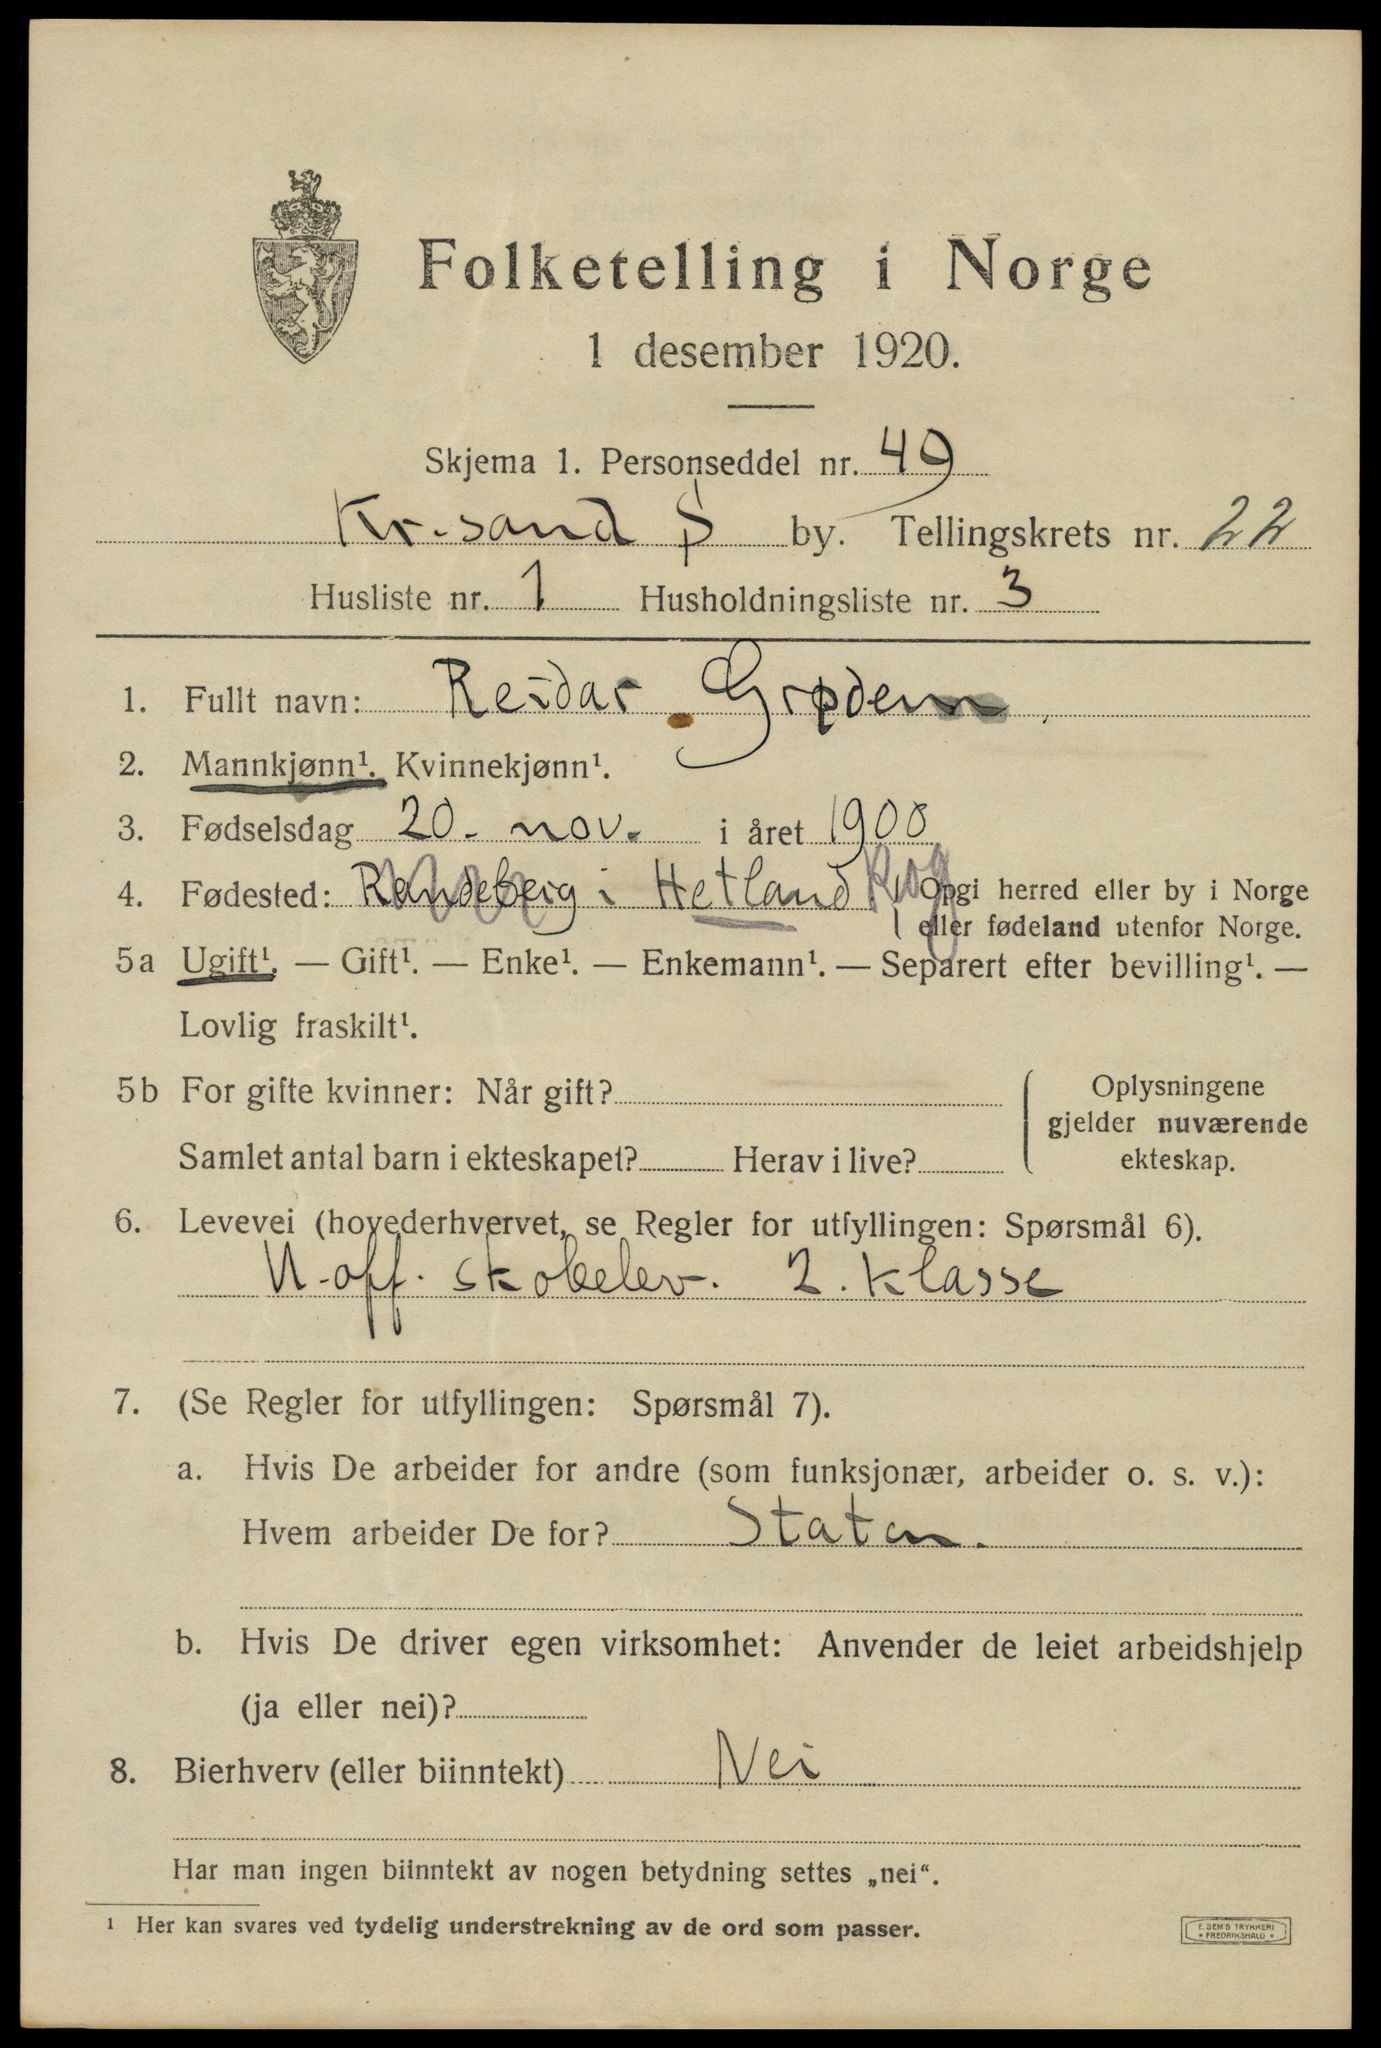 Folketelling i Norge
1 desember 1920.
Skjema 1. Personseddel nr. 49
Kr.sand S by. Tellingskrets nr. 22
Husliste nr. 1 Husholdningsliste nr. 3
1. Fullt navn: Reidar Grødem
2. Mannkjønn¹. Kvinnekjønn¹.
3. Fødselsdag 20. nov. i året 1900
4. Fødested: Randeberg i Hetland Rog Opgi herred eller by i Norge
eller fødeland utenfor Norge.
5a Ugift¹. — Gift¹. — Enke¹. — Enkemann¹. — Separert efter bevilling¹. —
Lovlig fraskilt¹.
5b For gifte kvinner: Når gift?
Oplysningene
gjelder nuværende
ekteskap.
Samlet antal barn i ekteskapet? Herav i live?
6. Levevei (hovederhvervet, se Regler for utfyllingen: Spørsmål 6).
U.off. skoleelev. 2. klasse
7. (Se Regler for utfyllingen: Spørsmål 7).
a. Hvis De arbeider for andre (som funksjonær, arbeider o. s. v.):
Hvem arbeider De for? Staten.
b. Hvis De driver egen virksomhet: Anvender de leiet arbeidshjelp
(ja eller nei)?
8. Bierhverv (eller biinntekt) Nei
Har man ingen biinntekt av nogen betydning settes „nei“.
¹ Her kan svares ved tydelig understrekning av de ord som passer.
E. SEM'S TRYKKERI
• FREDRIKSHALD •